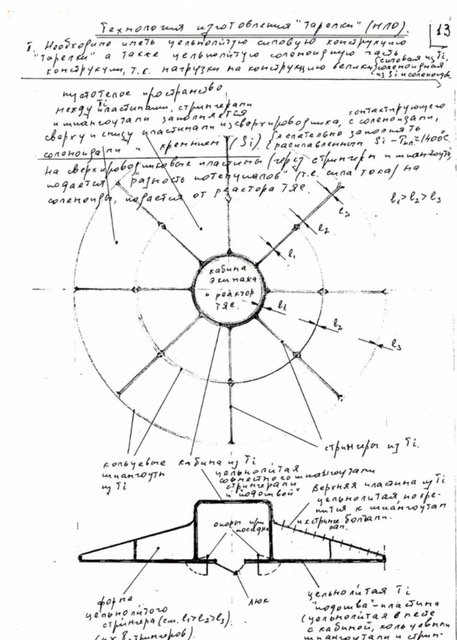 Технология изготовления "тарелки" (НЛО)
13
I. Необходимо иметь цельнолитую силовую конструкцию
"тарелки" а также цельнолитую соленоидную часть
конструкции, т.к. нагрузки на конструкцию велики
(силовая из Ti,
соленоидная
из Si и соленоидов)
пустотелое пространство
между Ti пластинами, стрингерами
и шпангоутами заполняется
контактирующего
сверху и снизу пластинами из сверхпроводника, с соленоидами,
соленоидами и кремнием (Si) (желательно заполнять
расплавленным Si - Tпл=1400°C
на сверхпроводниковые пластины (через стрингеры и шпангоуты
подается "разность потенциалов" (т.е. сила тока) на
соленоиды, подается от реактора ТЯЕ.
l1>l2>l3
l3
l2
l1
кабина
экипажа
и реактор
ТЯЕ.
l1
l2
l3
стрингеры из Ti.
кольцевые
шпангоуты
из Ti
кабина из Ti
цельнолитая
совместно с шпангоутами
стрингерами
и "подошвой"
Верхняя пластина из Ti
цельнолитая но кре-
пится к шпангоутам
и стрингерам болтами.
опоры при
посадке
форма
цельнолитого
стрингера (см. l1>l2>l3).
(их 8 стрингеров).
люк
цельнолитая Ti
"подошва"-пластина
(цельнолитая в месте
с кабиной, кольцевыми
шпангоутами и стрин-